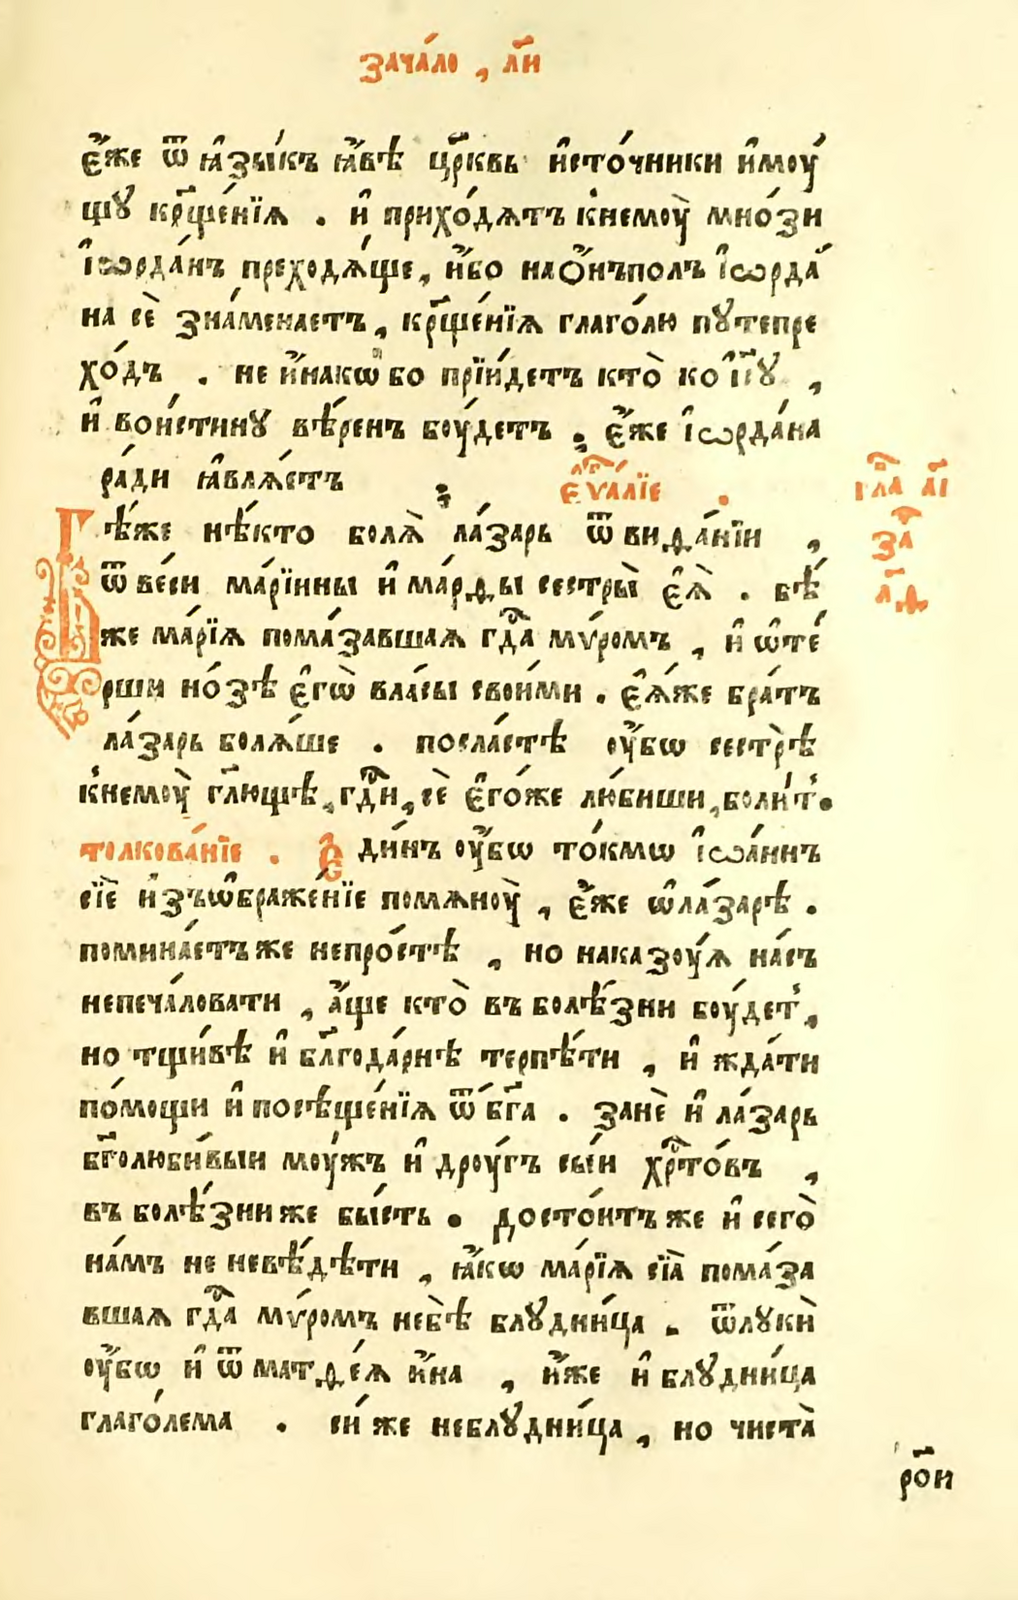 зача́ло , л҃и
є҆́же ѿ ꙗ҆зы́къ ꙗ҆́вѣ цр҃ковь и҆сто́чники и҆моу́
щꙋ кр҃ще́нїѧ . и҆ прихо́дѧтъ к̾немоу̀ мно́зи
і҆ѡрда́нъ преходѧ́ще , и҆́бо на ѻ҆́нъполъ і҆ѡрда́
на сѐ зна́менаетъ , кр҃ще́нїѧ глаго́лю пꙋтепре
хо́дъ . не и҆́накѡ бо прїи́детъ кто̀ ко
и҆ вои́стинꙋ вѣ́ренъ боу́детъ , є҆́же і҆ѡрда́на
ра́ди ꙗ҆влѧ́етъ є҆ѵⷢ҇а́лїе . гл҃а а҃і
Бѣ́же нѣ́кто болѧ̀ ла́заръ ѿ виѳа́нїи , за̀
ѿ ве́си марі́инны и҆ ма́рѳы сестры̀ є҆ѧ̀ . бѣ́ л҃ѳ
же марі́ѧ пома́завшаѧ гдⷭ҇а мѵ́ромъ , и҆ ѡ҆те́
рши но́зѣ є҆гѡ̀ власы̀ свои́ми . є҆ѧ́же бра́тъ
ла́заръ болѧ́ше . посла́стѣ оу҆́бѡ сестрѣ̀
к̾немоу̀ гл҃ющѣ , гдⷭ҇и , сѐ є҆го́же лю́биши , боли́т̾ .
толкова́нїе . Є҆ди́нъ оу҆́бѡ то́кмѡ і҆ѡа́ннъ
сїѐ и҆зъѡ҆браже́нїе помѧноу̀ , є҆́же ѡ҆ ла́зарѣ .
помина́етъ же непро́стѣ , но наказоу́ѧ на́съ
непеча́ловати , а҆́ще кто̀ въ болѣ́зни боу́дет̾ ,
но тщи́вѣ и҆ бл҃года́рнѣ терпѣ́ти , и҆ жда́ти
по́мощи и҆ посѣще́нїѧ ѿ бг҃а . занѐ и҆ ла́заръ
бг҃олюби́выи моу́жъ и҆ дроу́гъ сы́и хрⷭ҇то́въ ,
въ болѣ́зни же бы́сть . досто́итъ же и҆ сего̀
на́мъ не невѣ́дѣти , ꙗ҆́кѡ марі́ѧ сїѧ̀ пома́за
вшаѧ гдⷭ҇а мѵ́ромъ небѣ̀ блꙋдни́ца . ѿлꙋкѝ
оу҆́бѡ и҆ ѿ матѳе́ѧ и҆́на , и҆́же и҆ блꙋдни́ца
глаго́лема . сі́и же неблꙋдни́ца , но чиста̀
р҃ои